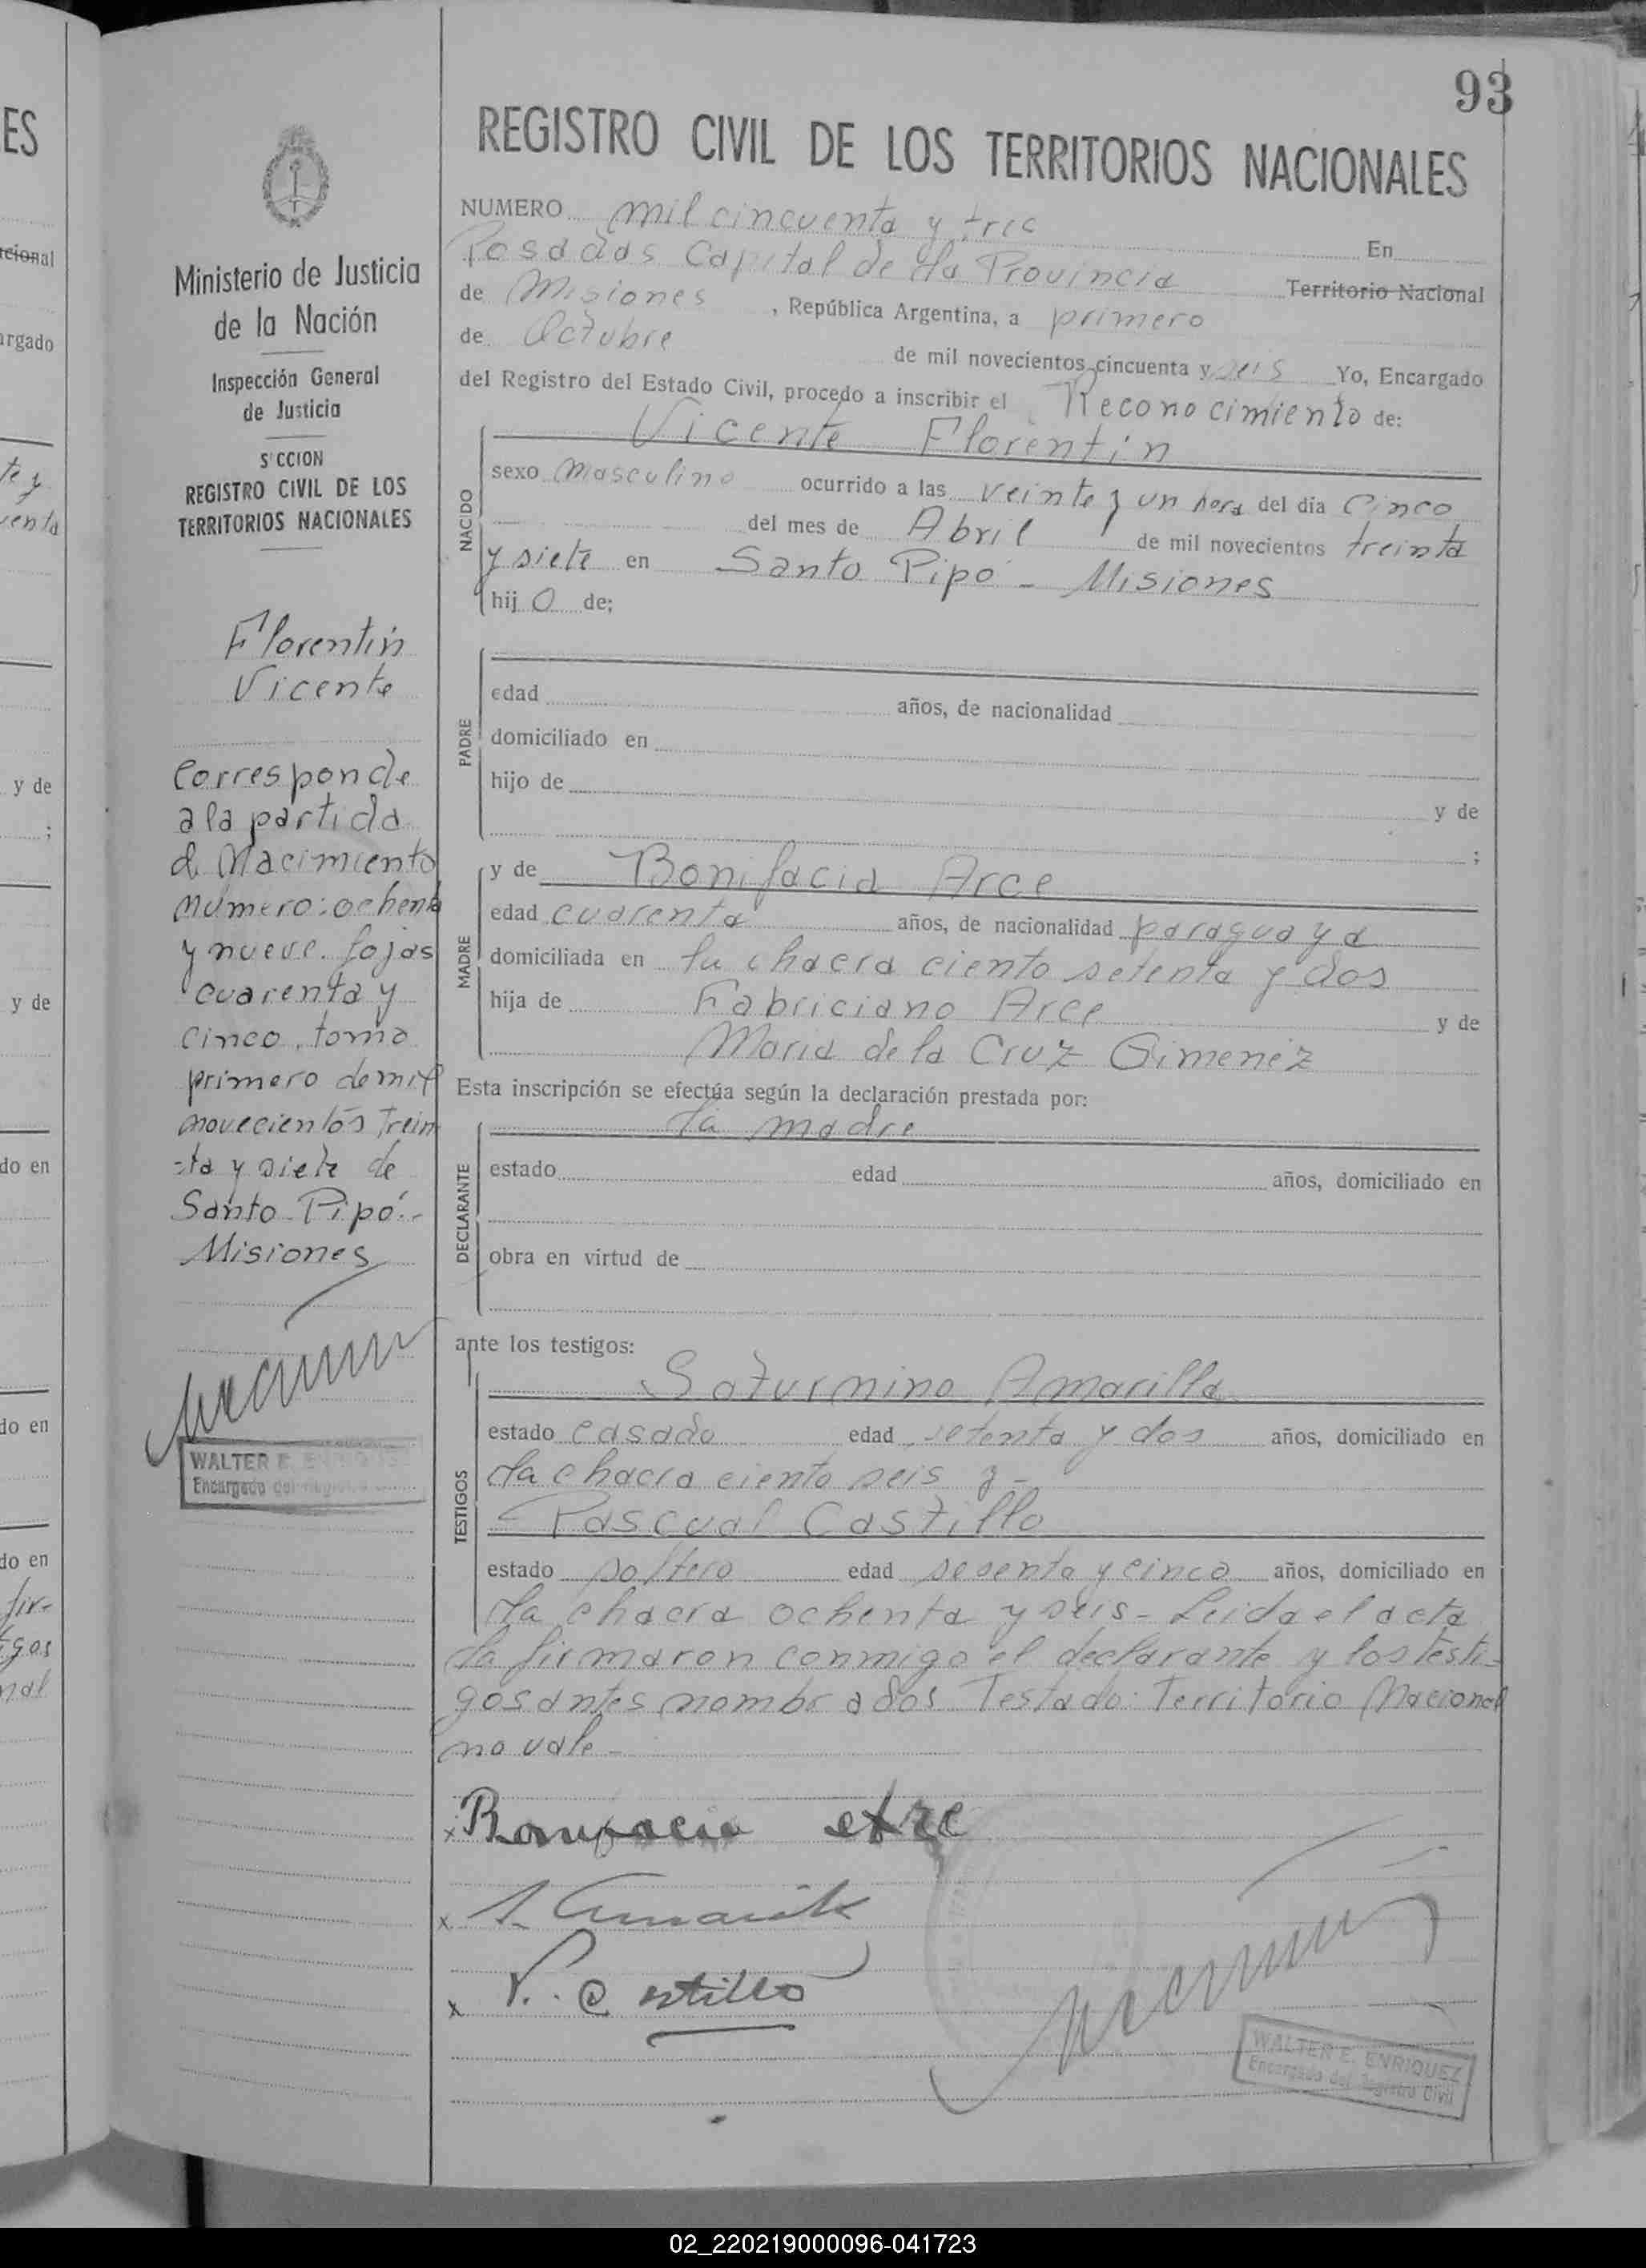 93
REGISTRO CIVIL DE LOS TERRITORIOS NACIONALES
NUMERO mil cincuenta y tres
En
Posadas Capital de la Provincia Territorio Nacional
de Misiones, República Argentina, a primero
de Octubre de mil novecientos cincuenta y seis Yo, Encargado
del Registro del Estado Civil, procedo a inscribir el Reconocimiento de:
Vicente Florentin
NACIDO
sexo masculino ocurrido a las veinte y un hora del día Cinco
del mes de Abril de mil novecientos treinta
y siete en Santo Pipo - Misiones
hij o de;
PADRE
edad años, de nacionalidad
domiciliado en
hijo de y de
;
MADRE
y de Bonifacia Arce
edad cuarenta años, de nacionalidad paraguaya
domiciliada en la chacra ciento setenta y dos
hija de Fabriciano Arce y de
Maria de la Cruz Gimenez
Esta inscripción se efectúa según la declaración prestada por:
la madre
DECLARANTE
estado edad años, domiciliado en
obra en virtud de
ante los testigos:
TESTIGOS
Saturnino Amarilla
estado casado edad setenta y dos años, domiciliado en
la chacra ciento seis y -
Pascual Castillo
estado soltero edad sesenta y cinco años, domiciliado en
la chacra ochenta y seis - Leida el acta
la firmaron conmigo el declarante y los testi-
gos antes nombrados Testado: Territorio Nacional
no vale -
x Bonifacia
x S. Amarilla
x P. Castillo
WALTER E. ENRIQUEZ
Encargado del Registro Civil
Ministerio de Justicia
de la Nación
Inspección General
de Justicia
S CCION
REGISTRO CIVIL DE LOS
TERRITORIOS NACIONALES
Florentin
Vicente
Corresponde
a la partida
de Nacimiento
numero: ochenta
y nueve. fojas
cuarenta y
cinco, tomo
primero de mil
novecientos trein
-ta y siete de
Santo Pipó.-
Misiones
WALTER E. ENRIQUEZ
Encargado del Registro
ES
cional
argado
te y
y de
;
y de
do en
do en
do en
fir-
gos
nal
02_220219000096-041723